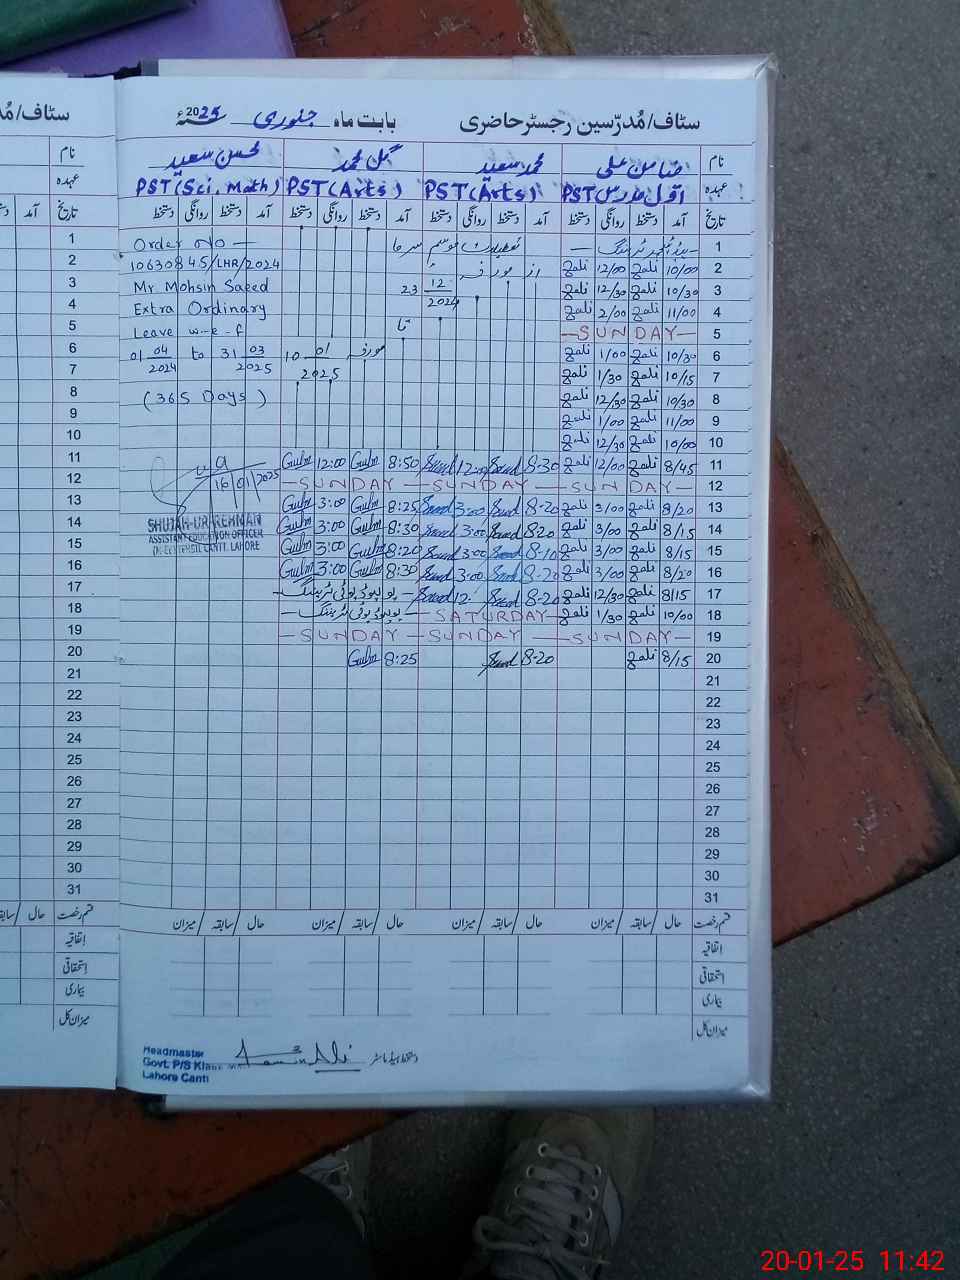 سٹاف/مُدرّسین رجسٹر حاضری بابت ماہ جنوری 2025ء
نام ضامن علی محمد سعید گل محمد محسن سعید
عہدہ اوّل مدرس PST PST (Arts) PST (Arts) PST (Sci, Math)
تاریخ آمد دستخط روانگی دستخط آمد دستخط روانگی دستخط آمد دستخط روانگی دستخط آمد دستخط روانگی دستخط
1 تعطیلات موسم سرما Order No —
2 10/00 Zali 12/00 Zali از مورخہ 10630845/LHR/2024
3 10/30 Zali 12/30 Zali 23 12/2024 Mr Mohsin Saeed
4 11/00 Zali 2/00 Zali Extra Ordinary
5 —SUNDAY— تا Leave w-e-f
6 10/30 Zali 1/00 Zali مورخہ 10 01/2025 01 04/2024 to 31 03/2025
7 10/15 Zali 1/30 Zali
8 10/30 Zali 12/30 Zali (365 Days)
9 11/00 Zali 1/00 Zali
10 10/00 Zali 12/30 Zali
11 8/45 Zali 12/00 Zali 8-30 Saeed 12:00 Saeed 8:50 Gulm 12:00 Gulm
12 —SUNDAY— —SUNDAY— —SUNDAY— 16/01/2025
13 8/20 Zali 3/00 Zali 8-20 Saeed 3:00 Saeed 8:25 Gulm 3:00 Gulm
14 8/15 Zali 3/00 Zali 8-20 Saeed 3:00 Saeed 8:30 Gulm 3:00 Gulm SHUJAH-UR-REHMAN
ASSISTANT EDUCATION OFFICER
15 8/15 Zali 3/00 Zali 8-10 Saeed 3:00 Saeed 8:20 Gulm 3:00 Gulm CANTT. LAHORE
16 8/20 Zali 3/00 Zali 8-20 Saeed 3:00 Saeed 8:30 Gulm 3:00 Gulm
17 8/15 Zali 12/30 Zali 8-20 Saeed 12 Saeed —پولیو ڈیوٹی ٹریننگ—
18 10/00 Zali 1/30 Zali —SATURDAY— —پولیو ڈیوٹی ٹریننگ—
19 —SUNDAY— —SUNDAY— —SUNDAY—
20 8/15 Zali 8-20 Saeed 8:25 Gulm
21
22
23
24
25
26
27
28
29
30
31
قسم رخصت حال / سابقہ / میزان حال / سابقہ / میزان حال / سابقہ / میزان حال / سابقہ / میزان
اتفاقیہ
استحقاقی
بیماری
میزان کل
دستخط ہیڈ ماسٹر
Headmaster
Govt. P/S
Lahore Cantt
سٹاف/مُد
نام
عہدہ
تاریخ آمد
1
2
3
4
5
6
7
8
9
10
11
12
13
14
15
16
17
18
19
20
21
22
23
24
25
26
27
28
29
30
31
قسم رخصت حال
اتفاقیہ
استحقاقی
بیماری
میزان کل
20-01-25 11:42